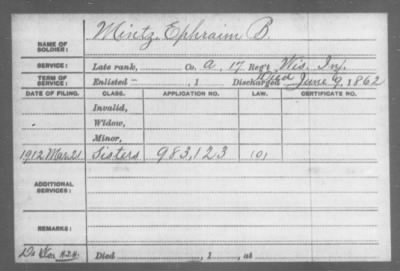 Mintz, Ephraim B.
NAME OF SOLDIER:
SERVICE: Late rank, Co. A, 17 Reg't Wis. Inf.
TERM OF SERVICE: Enlisted – , 1 Discharged Died June 9, 1862
DATE OF FILING. CLASS. APPLICATION NO. LAW. CERTIFICATE NO.
Invalid,
Widow,
Minor,
1912 Mar. 21 Sisters 983,123 (0)
ADDITIONAL SERVICES:
REMARKS:
Died , 1 , at